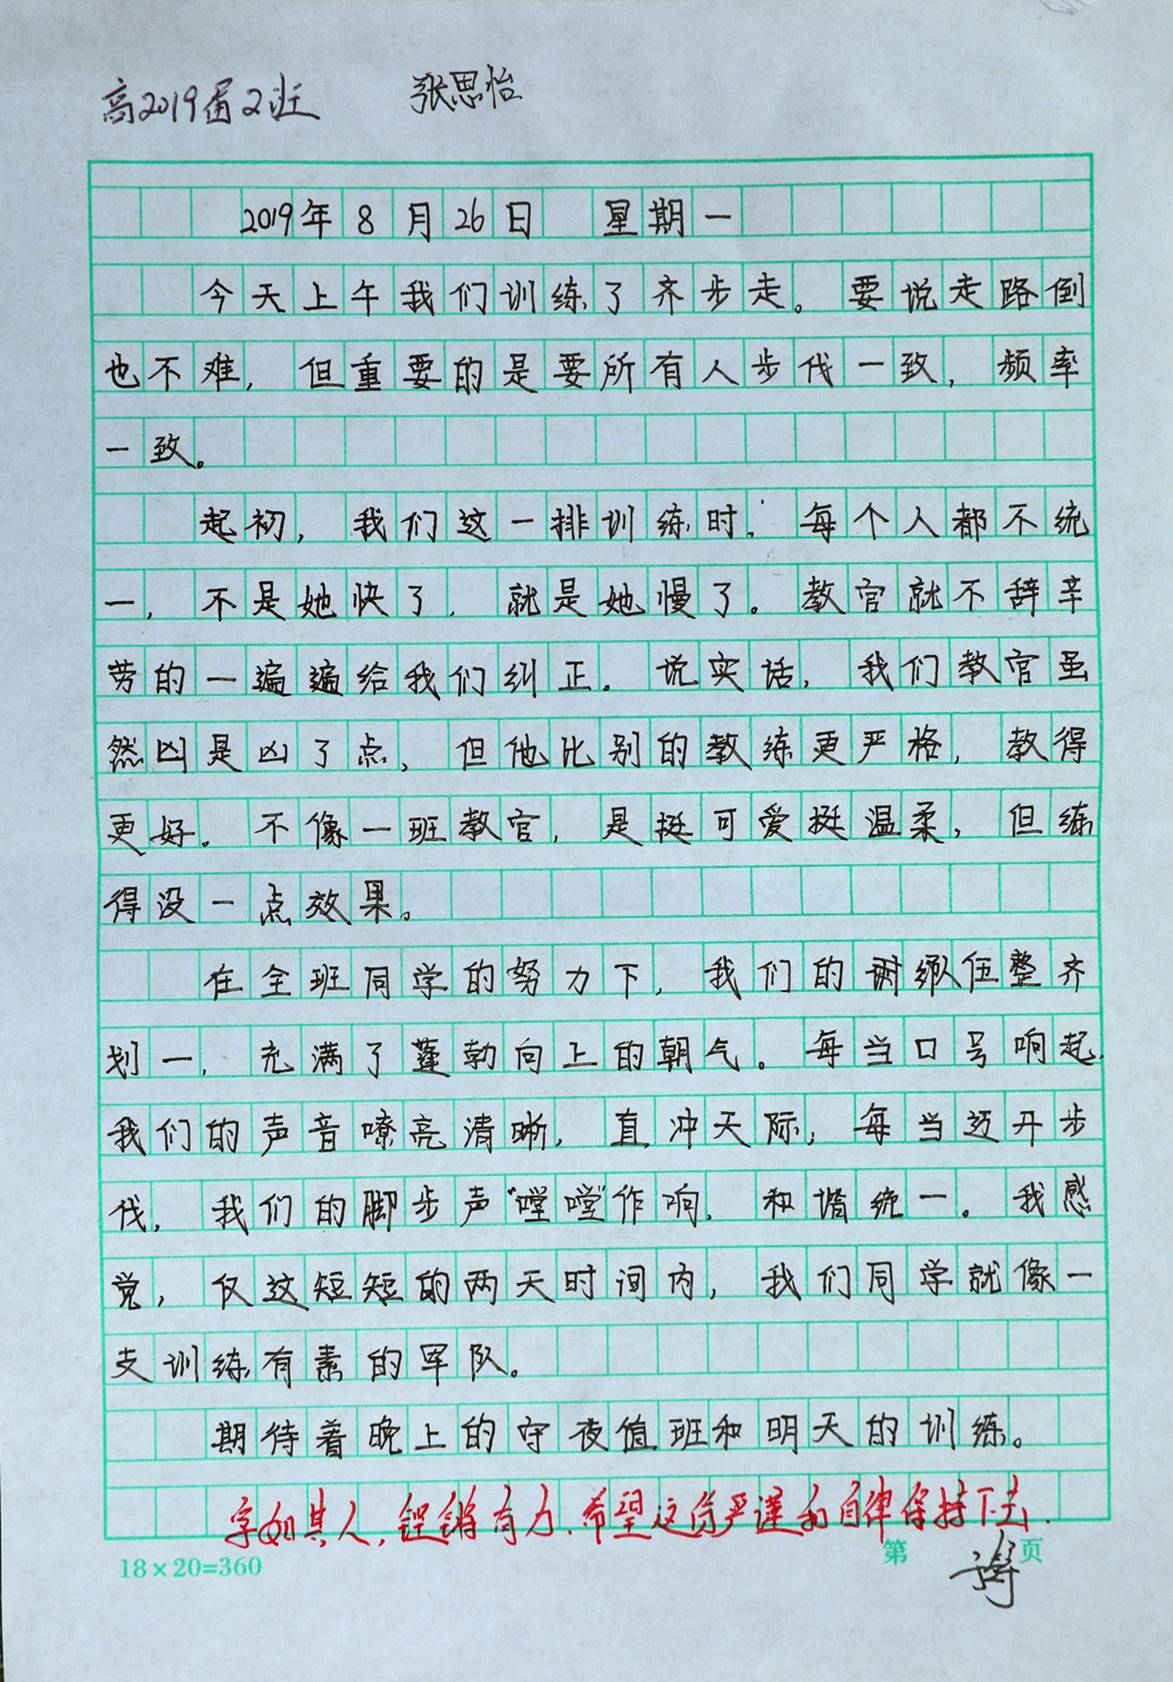 高2019届2班 张思怡
2019年8月26日 星期一
今天上午我们训练了齐步走。要说走路倒
也不难，但重要的是要所有人步伐一致，频率
一致。
起初，我们这一排训练时，每个人都不统
一，不是她快了，就是她慢了。教官就不辞辛
劳的一遍遍给我们纠正。说实话，我们教官虽
然凶是凶了点，但他比别的教练更严格，教得
更好。不像一班教官，是挺可爱挺温柔，但练
得没一点效果。
在全班同学的努力下，我们的队伍整齐
划一，充满了蓬勃向上的朝气。每当口号响起，
我们的声音嘹亮清晰，直冲天际，每当迈开步
伐，我们的脚步声“噔噔”作响，和谐统一。我感
觉，仅这短短的两天时间内，我们同学就像一
支训练有素的军队。
期待着晚上的守夜值班和明天的训练。
字如其人，铿锵有力，希望这份严谨和自律保持下去.
18×20=360 第 页